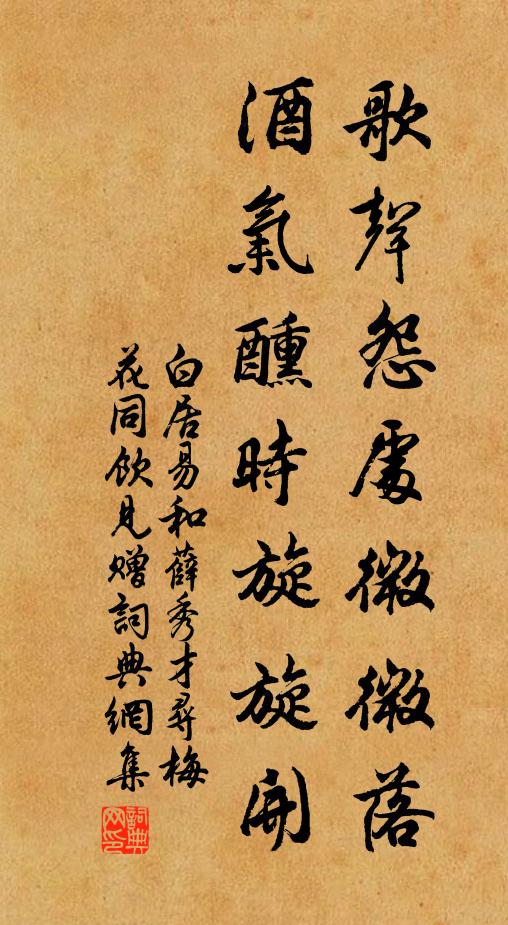 歌聲怨處微微落
酒氣醺時旋旋開
白居易和薛秀才尋梅
花同飲見贈詞典網集
詞典
网印